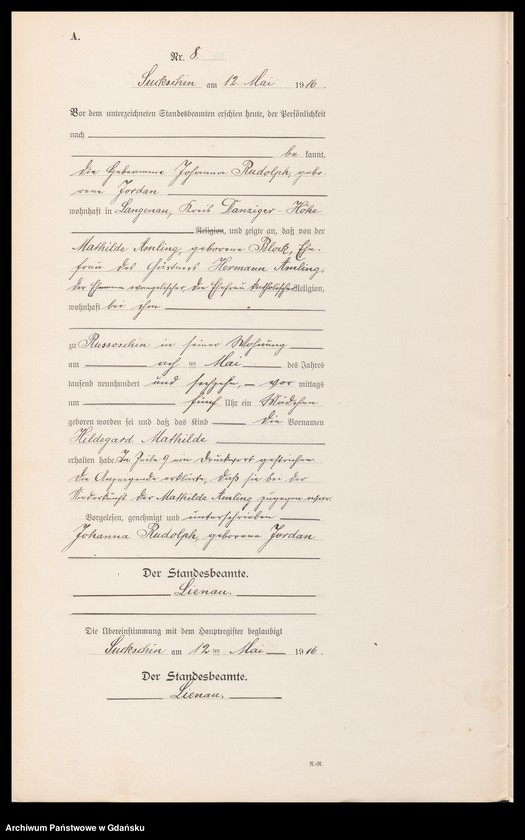 A.
Nr. 8.
Suckschin am 12 Mai 1916.
Vor dem unterzeichneten Standesbeamten erschien heute, der Persönlichkeit
nach
be kannt,
die Hebamme Johanna Rudolph, gebo-
rene Jordan
wohnhaft in Langenau, Kreis Danziger-Höhe
Religion, und zeigte an, daß von der
Mathilde Amling, geborene Block, Ehe-
frau des Gärtners Hermann Amling,
der Ehemann evangelischer, die Ehefrau katholischer Religion,
wohnhaft bei ihm
zu Russoschin in seiner Wohnung
am acht ten Mai des Jahres
tausend neunhundert und sechzehn, vor mittags
um fünf Uhr ein Mädchen
geboren worden sei und daß das Kind die Vornamen
Hildegard Mathilde
erhalten habe. In Zeile 9 ein Druckwort gestrichen
Die Anzeigende erklärte, daß sie bei der
Niederkunft der Mathilde Amling zugegen war.
Vorgelesen, genehmigt und unterschrieben
Johanna Rudolph, geborene Jordan
Der Standesbeamte.
Lienau.
Die Übereinstimmung mit dem Hauptregister beglaubigt
Suckschin am 12 ten Mai 1916.
Der Standesbeamte.
Lienau.
R.-R.
Archiwum Państwowe w Gdańsku